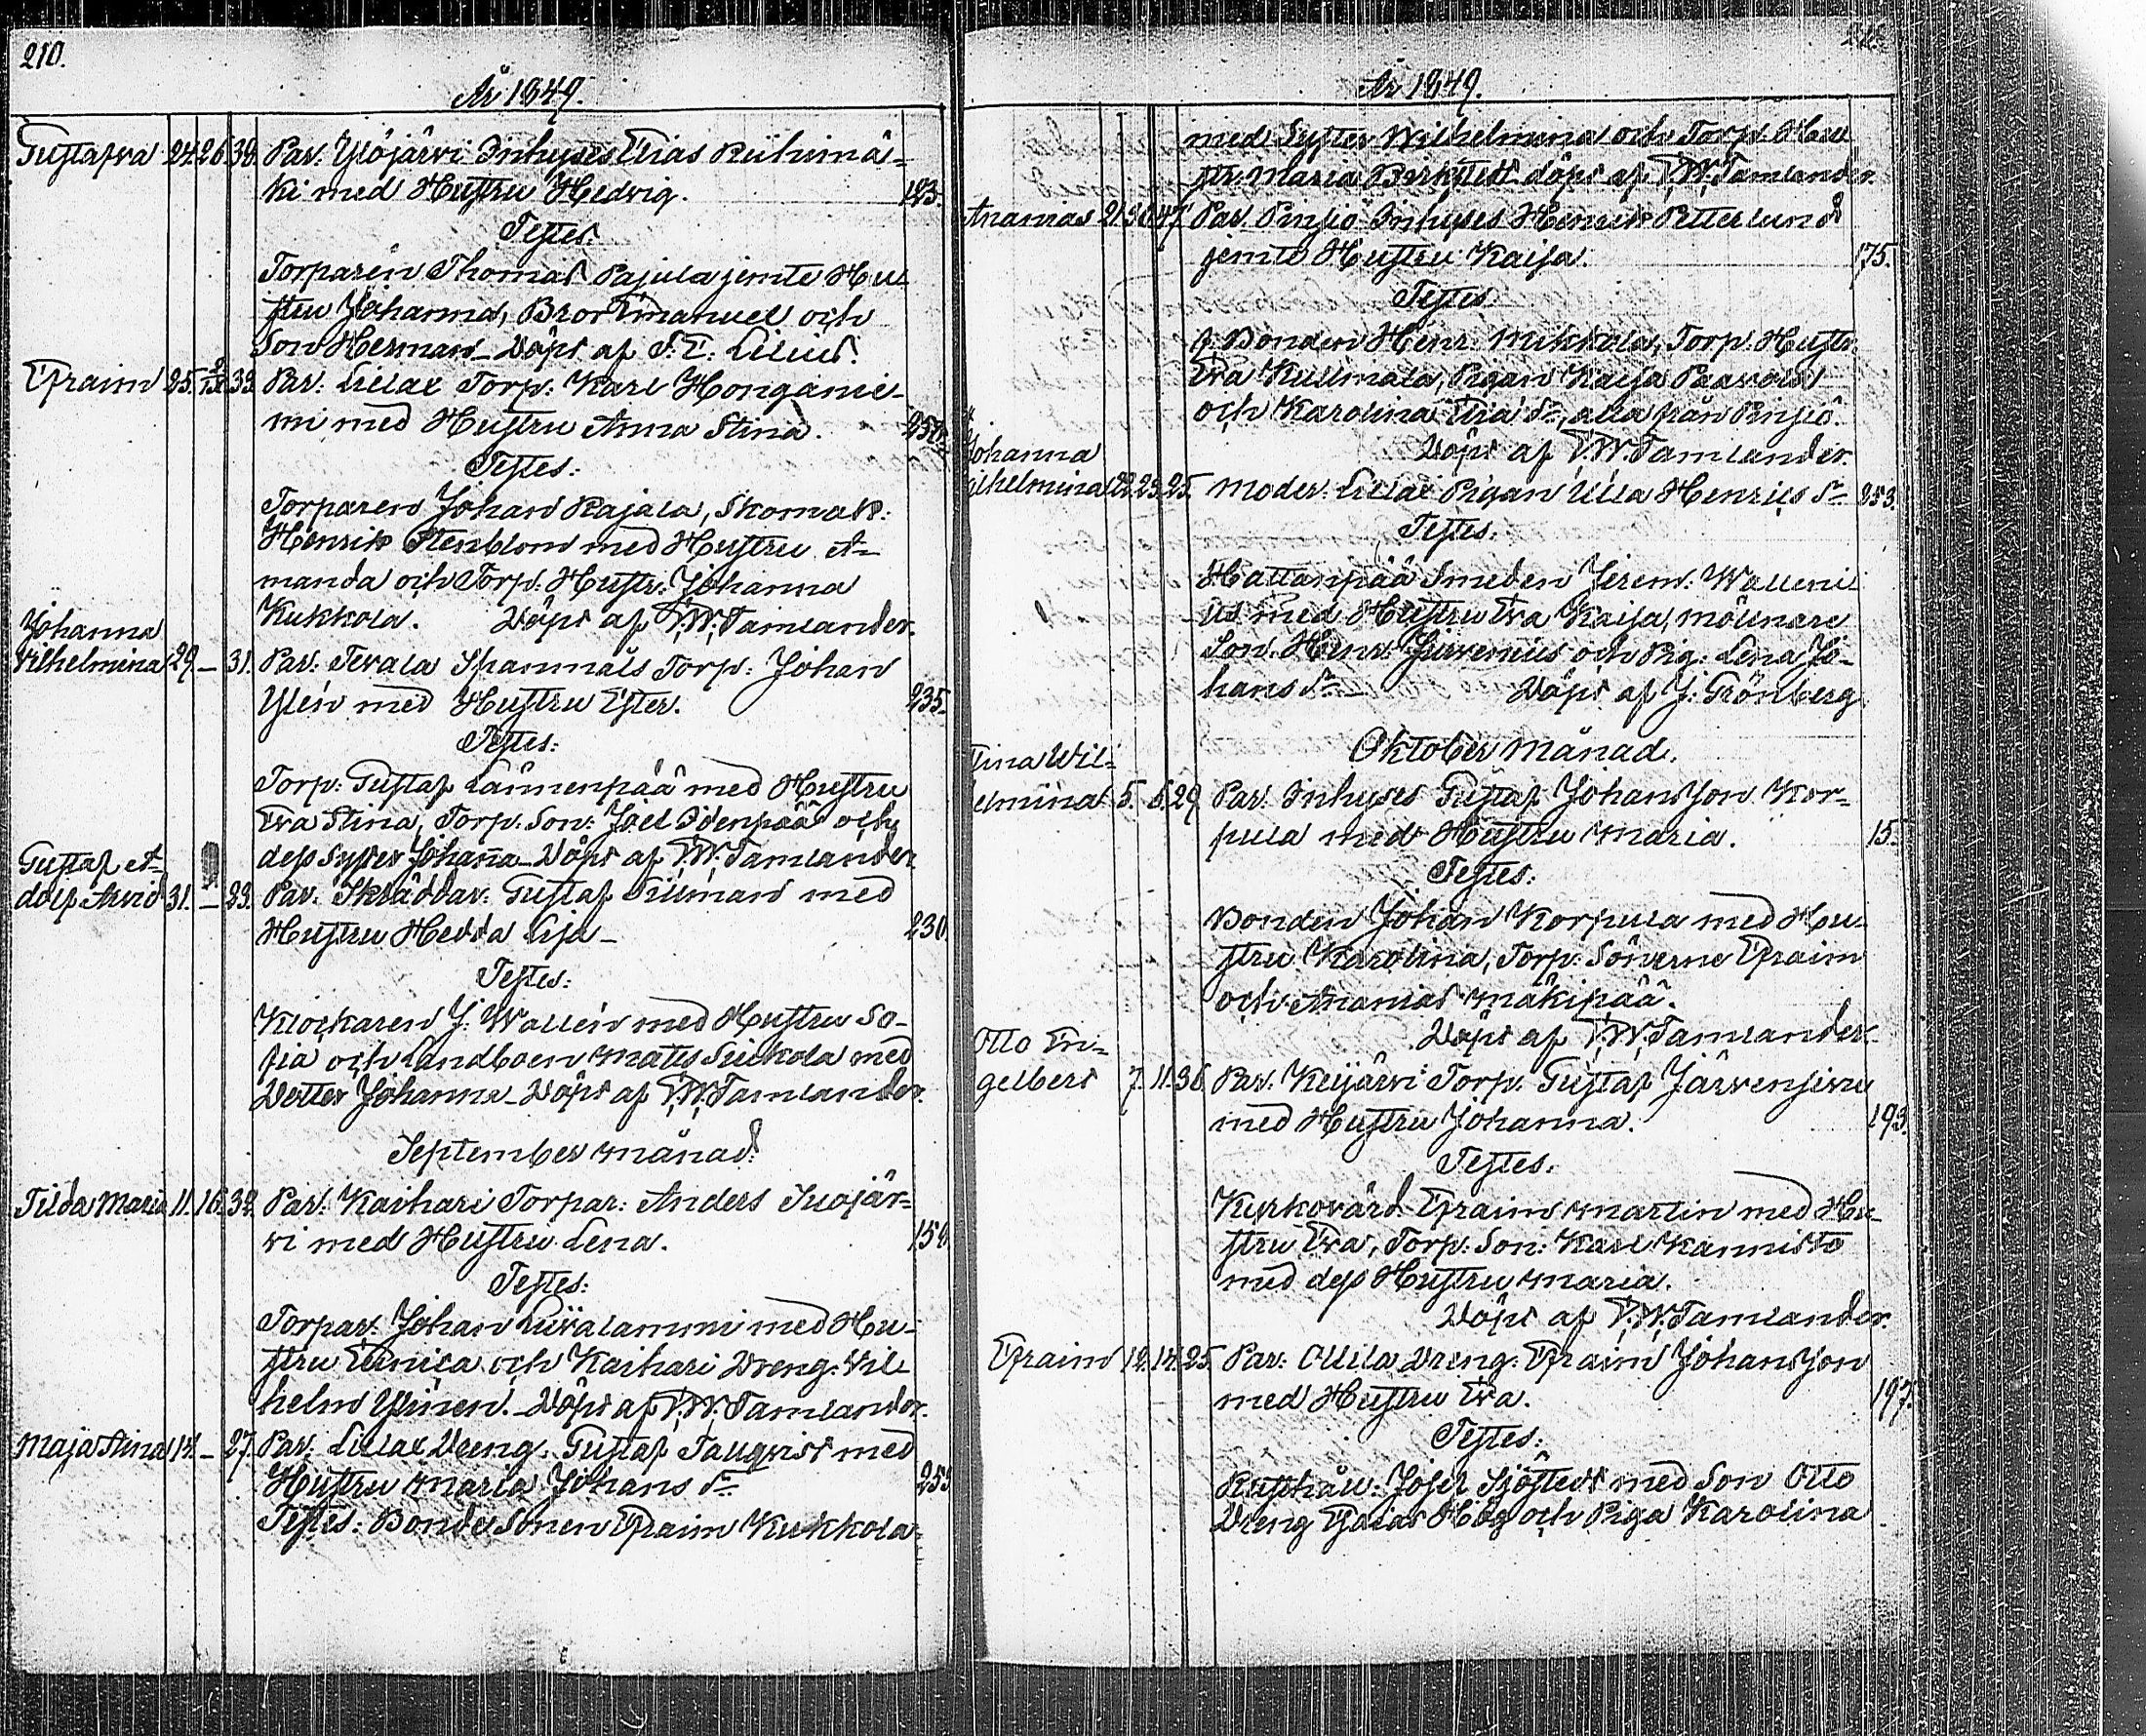 210.
År 1849.
Gustafva 24. 26. 39. Par: Ylöjärvi Inhyses Elias Riihimä-
ki med Hustru Hedvig. 123.
Testes:
Torparen Thomas Pajula jemte Hu
stru Johanna, Bror Emanuel och
Son Herman_ Döpt af S. E. Lilius.
Efraim 25. 33. Par: Lillax Torp: Karl Honganie-
mi med Hustru Anna Stina.
Testes:
Torparen Johan Rajala, Skomak:
Henrik Stenblom med Hustru A-
manda och Torp: Hustr: Johanna
Kukkola. Döpt af F.W. Tamlander.
Johanna
Vilhelmina 29. – 31. Par: Tevala Spannmåls Torp: Johan
Ylén med Hustru Ester. 235.
Testes:
Torp: Gustaf Lännenpää med Hustru
Eva Stina, Torp: Son: Joel Idenpää och
dess Syster Johanna_ Döpt af F.W. Tamlander
Gustaf A-
dolf Arvid 31. – 23. Par: Skräddar: Gustaf Sillman med
Hustru Hedda Lisa_ 230.
Testes:
Klockaren J. Wallén med Hustru So-
fia och Landboen Mats Sukkola med
Dotter Johanna_ Döpt af F.W. Tamlander.
September månad:
Tilda Maria 11. 16. 32. Par: Kaihari Torpar: Anders Suojär-
vi med Hustru Lena. 154.
Testes:
Torpar: Johan Liivalammi med Hu-
stru Ernica och Kaihari Dreng: Vil
helm Ylinen._ Döpt af F.W. Tamlander.
Maja Stina 14. – 27. Par: Lillax Dreng: Gustaf Tallqvist med
Hustru Maria Johans dr 253
Testes: Bonde Sonen Efraim Kukkola
År 1849.
med Syster Wilhelmina och Torp: Hu
str: Maria Birkstedt döpt af F.W. Tamlander.
Ananias 21. 30. 47. Par: Pinsiö Inhyses Henrik Petterlund
jemte Hustru Kaisa. 175.
Testes
f. Bonden Henr: Mikkola, Torp: Hustr:
Eva Kullmala, Pigan Kaisa Paavola
och Karolina Elia dr, alla från Pinsiö.
Döpt af F.W. Tamlander.
Johanna
ilhelmina 22. 23. 25. Moder: Lillax Pigan Ulla Henrics dr 253.
Testes:
Hattanpää Smeden Jerem: Walleni-
us med Hustru Eva Kaisa, mölnare
Son: Henr: Jurvenius och Pig: Lena Jo-
hans dr_ Döpt af J. Grönberg
Oktober månad.
Tina Wil-
elmina 5. 6. 29. Par: Inhyses Gustaf Johansson Kor-
pula med Hustru Maria. 15.
Testes:
Bonden Johan Korpula med Hu-
stru Karolina, Torp: Sönerne Efraim
och Ananias Mäkipää.
Döpt af F.W. Tamlander.
Otto En-
gelbert 7. 11. 36. Par: Keijärvi Torp: Gustaf Järvensivu
med Hustru Johanna. 193.
Testes.
Kyrkovärd Efraim Martin med Hu-
stru Eva, Torp: Son: Karl Kannisto
med dess Hustru Maria.
Döpt af F.W. Tamlander.
Efraim 12. 14. 25. Par: Ollila Dreng: Efraim Johansson
med Hustru Eva. 197.
Testes:
Rusthåll: Josef Sjöstedt med Son Otto
Dreng Esaias Hög och Piga Karolina